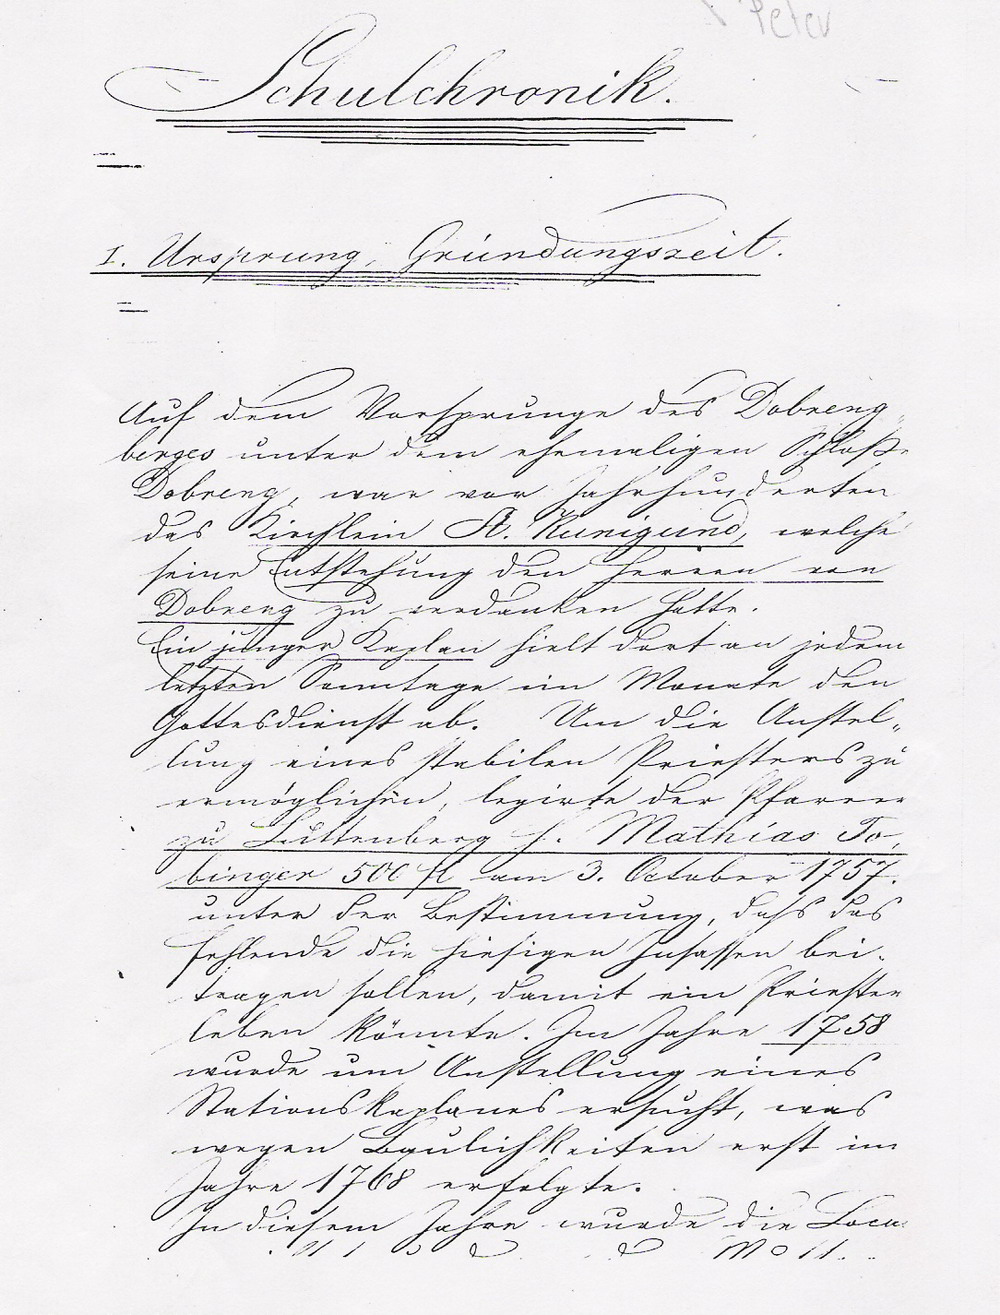 Peter
Schulchronik.
I. Ursprung, Gründungszeit.
Auf dem Vorsprunge des Dobreng-
berges unter dem ehemaligen Schloße
Dobreng, war vor Jahrhunderten
das Kirchlein St. Kunigund, welche
seine Entstehung den Herren von
Dobreng zu verdanken hatte.
Ein junger Kaplan hielt dort an jedem
letzten Sonntage im Monate den
Gottesdienst ab. Um die Anstel-
lung eines stabilen Priesters zu
ermöglichen, legirte der Pfarrer
zu Luttenberg H. Mathias To-
binger 500 fl am 3. October 1757.
unter der Bestimmung, dass das
fehlende die hiesigen Insassen bei-
tragen sollen, damit ein Priester
leben könnte. Im Jahre 1758
wurde um Anstellung eines
Stationskaplanes ersucht, was
wegen Baulichkeiten erst im
Jahre 1768 erfolgte.
In diesem Jahre wurde die Loca